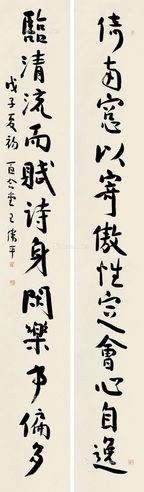 倚南窗以寄傲性定會心自遠
臨清流而賦詩身閑樂事偏多
戊子夏初百合堂王偉平